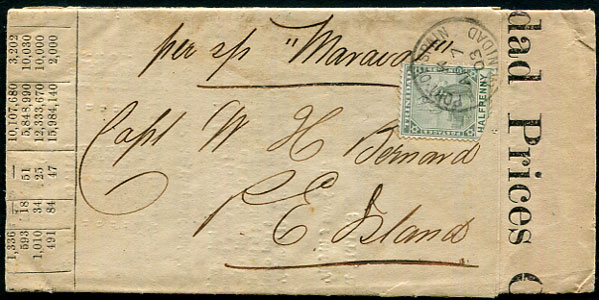 per sp "Maraval"
Capt W H Bernard
P E Island
HALFPENNY
TRINIDAD
dad Prices C
3,202
10,030
10,000
2,000
10,107,680
5,848,990
12,333,670
15,984,140
—
51
25
47
—
18
34
84
1,336
593
1,010
491